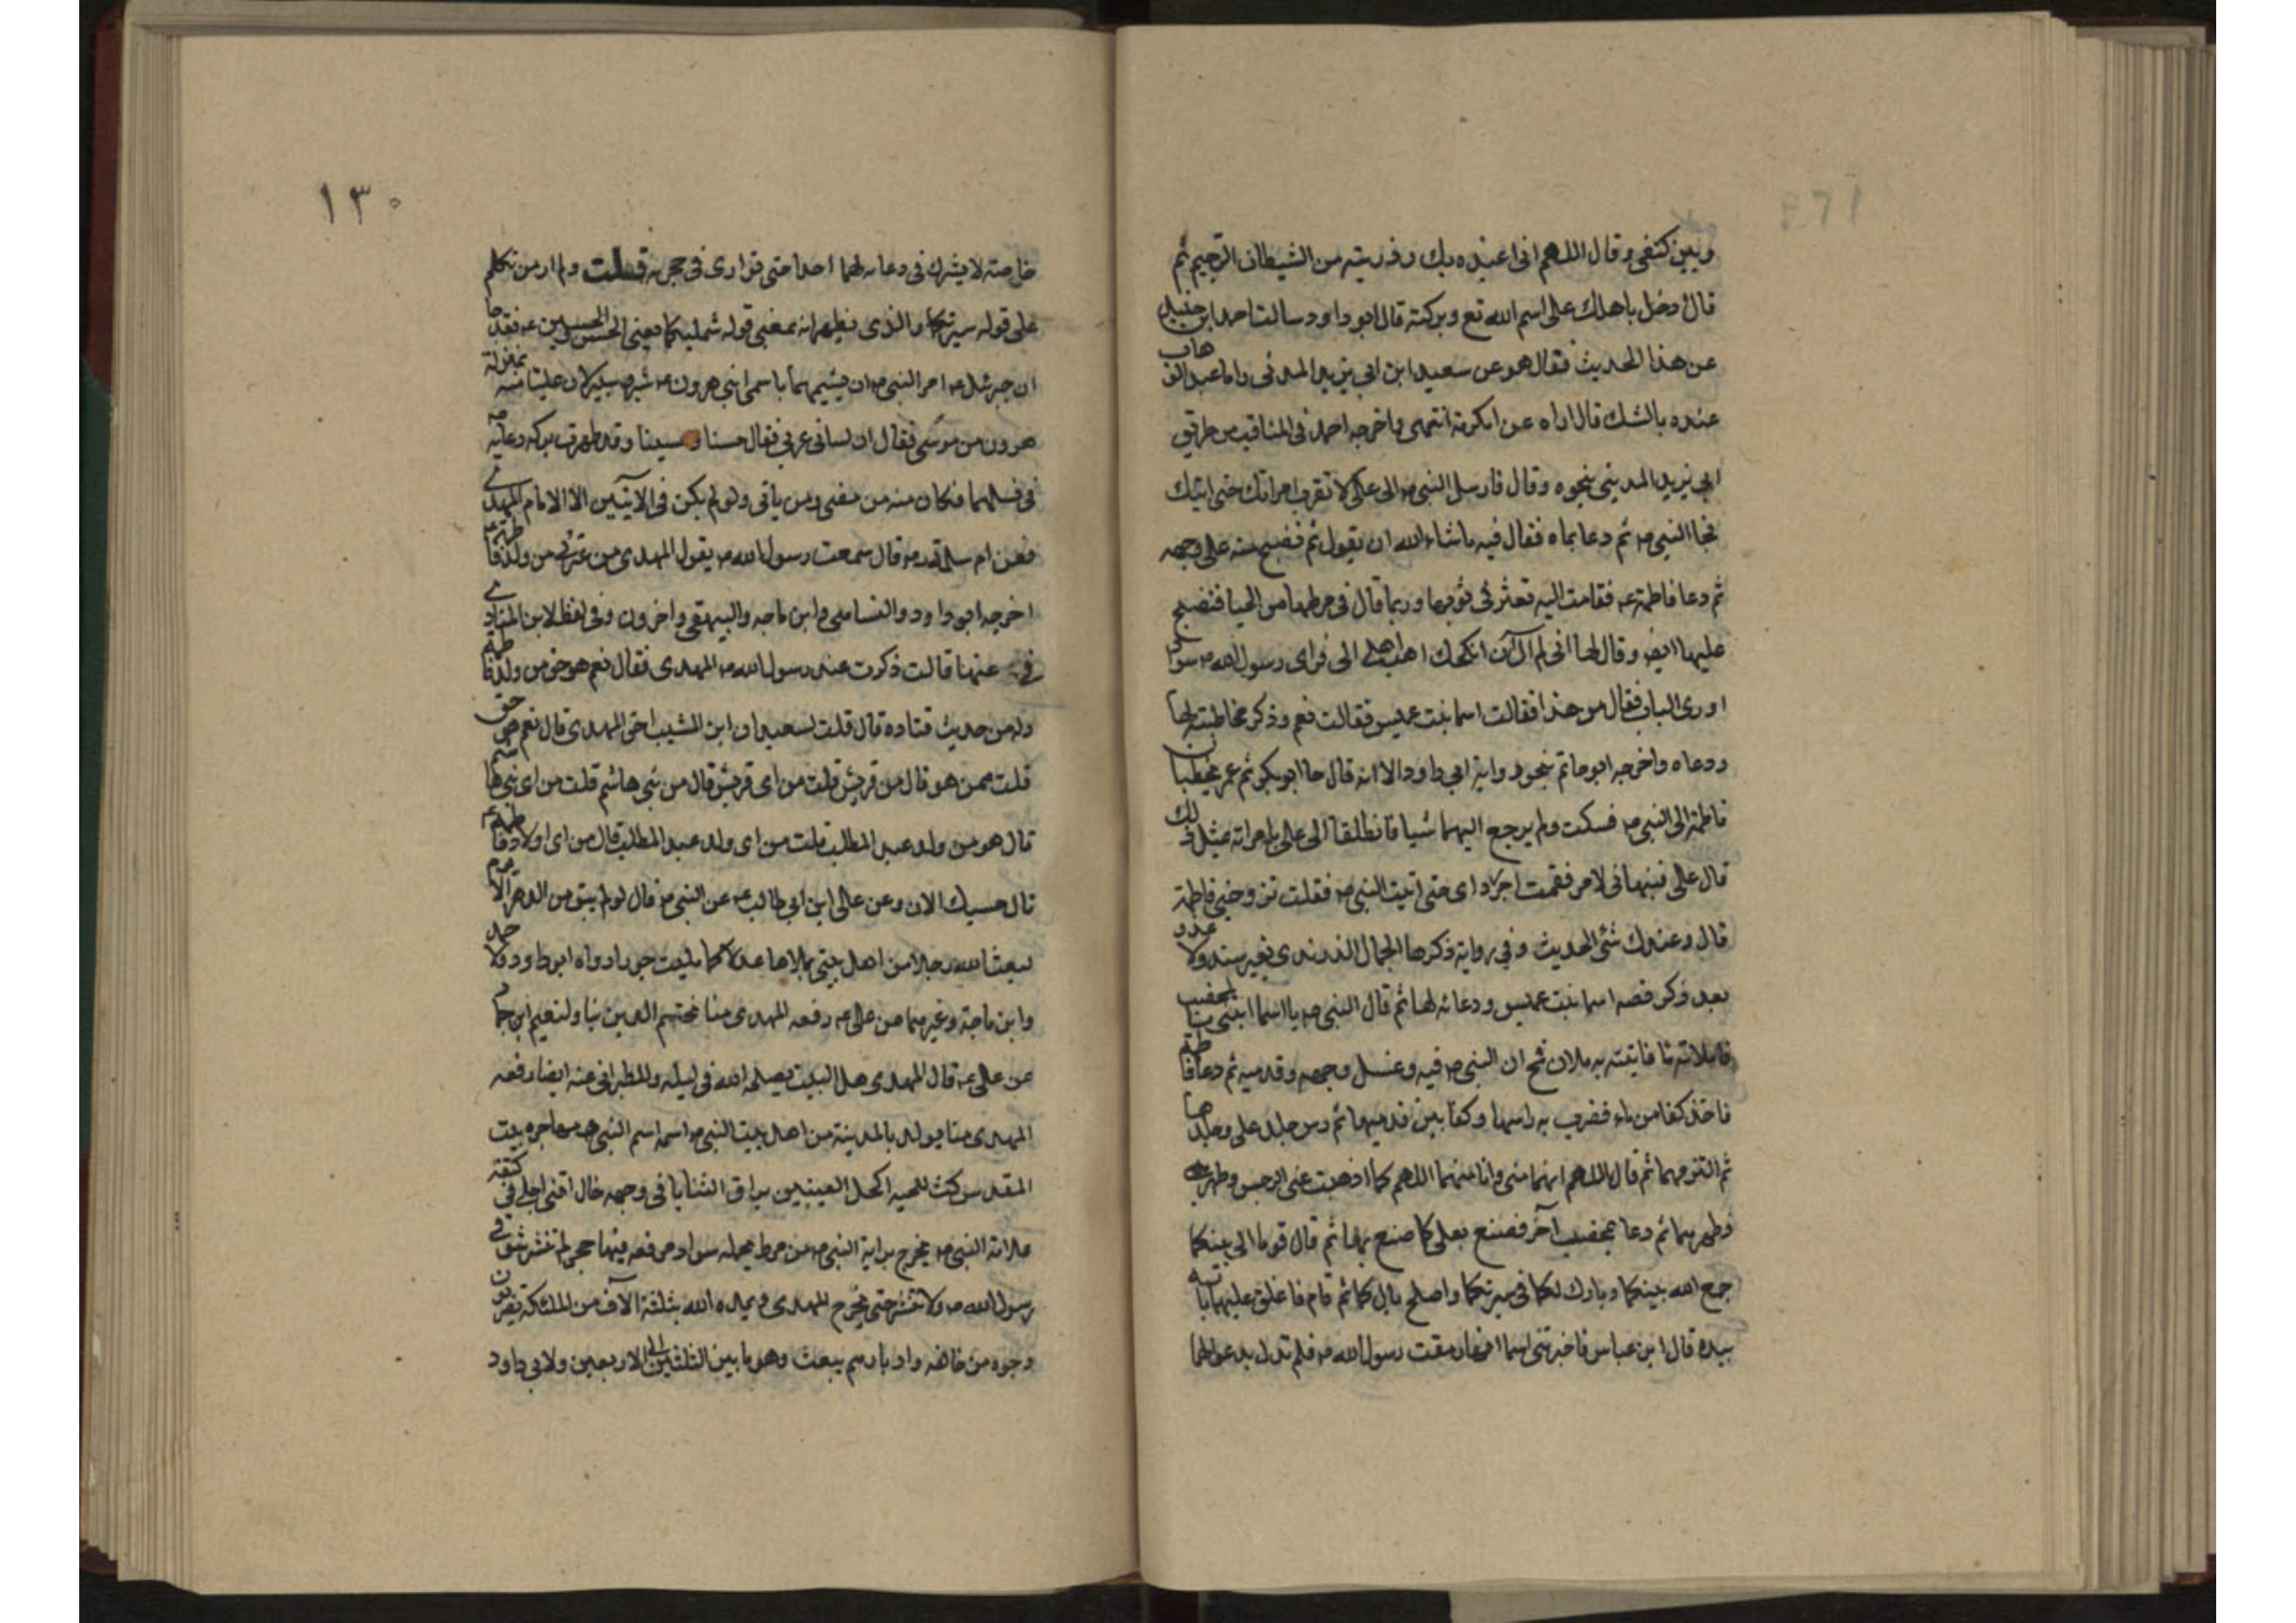 وبين كتفى وقال اللهم انى اعيذه بك وذريته من الشيطان الرجيم ثم
قال ادخل باهلك على اسم الله تع وبركته قال ابو داود سالت احمد ابن حنبل
عن هذا الحديث فقال هو عن سعيد ابن ابى يزيد المدنى واما عبد الوهاب
عنده بالشك قال اراه عن عكرمة انتهى واخرجه احمد فى المناقب من طريق
ابى يزيد المدينى بنحوه وقال فارسل النبى ص الى على لا تقرب امراتك حتى اتيك
فجا النبى ص ثم دعا بماه فقال فيه ماشاء الله ان يقول ثم نضح منه على وجهه
ثم دعا فاطمة ع فقامت اليه تعثر فى ثوبها وربما قال فى مرطها من الحيا فنضح
عليها ايض وقال لها انى لم آل ان انكحك احب اهلى الى فراى رسول الله ص سوادا
اورى الباب فقال من هذا فقالت اسما بنت عميس فقالت نعم وذكر مخاطبته لها
ودعاه واخرجه ابو حاتم بنحو رواية ابى داود الا انه قال جا ابو بكر ثم عمر يخطبان
فاطمة الى النبى ص فسكت ولم يرجع اليهما شيا فانطلقا الى على يامرانه بمثل ذلك
قال على فنبهانى لامر فقمت اجر رداى حتى اتيت النبى ص فقلت تزوجنى فاطمة
قال وعندك شئ الحديث وفى رواية ذكرها الجمال الزرندى بغير سند ولا عدو
بعد ذكر قصه اسما بنت عميس ودعائه لها ثم قال النبى ص يا اسما ايتنى بمخضب
فاملائه ما فاتيته به ملان فمج النبى ص فيه وغسل وجهه وقدميه ثم دعا فاطمة
فاخذ كفا من ماء فضرب به راسها وكفا بين قدميها ثم رس جلده على وجلدها
ثم التزمهما ثم قال اللهم انهما منى وانا منهما اللهم كما اذهبت عنى الرجس وطهرته
فطهرهما ثم دعا بمخضب آخر فصنع بعلى كما صنع بها ثم قال قوما الى بيتكما
جمع الله بينكما وبارك لكما فى سيرتكما واصلح بالكما ثم قام فاغلق عليهما بابه
بيده قال ابن عباس فاخبرتنى اسما انها رمقت رسول الله ص فلم تزل يدعو لهما
١٣٠
خاصة لا يشرك فى دعاه لهما احدا حتى توارى فى حجره قلت ولم ار من تكلم
على قوله سيرتكما والذى يظهر انه بمعنى قوله شمليكما يعنى الحسن والحسين ع فقد جا
ان جبرئيل ع امر النبى ص ان يسميهما باسمى ابنى هرون ع شبر وشبير لان عليا منه بمنزلة
هرون من موسى فقال ان لسانى عربى فقال حسنا وحسينا وقد ظهرت بركه دعايه ص
فى نسلهما فكان منه من مضى ومن ياتى ولو لم يكن فى الاتيين الا الامام المهدى
فعن ام سلمة رض قال سمعت رسول الله ص يقول المهدى من عترتى من ولد فاطمة ع
اخرجه ابو داود والنسائى وابن ماجه والبيهقى واخرون وفى لفظ لابن المنادى
فى عنها قالت ذكرت عند رسول الله ص المهدى فقال نعم هو حق من ولد فاطمة
وله من حديث قتاده قال قلت لسعيد ابن المسيب احق المهدى قال نعم هو حق
قلت ممن هو قال من قريش قلت من اى قريش قال من بنى هاشم قلت من اى بنى هاشم
قال هو من ولد عبد المطلب قلت من اى ولد عبد المطلب قال من اى اولاد فاطمة ع
قال حسبك الان وعن على ابن ابى طالب ع عن النبى ص قال لو لم يبق من الدهر الا يوم
لبعث الله رجلا من اهل بيتى يملاها عدلا كما مليت جورا رواه ابو داود ولاحمد
وابن ماجة وغيرهما عن على ع رفعه المهدى منا يختم الدين بنا ولنعيم ابن حماد
عن على ع قال المهدى من اهل البيت يصلحه الله فى ليله وللطبرانى عنه ايضا رفعه
المهدى منا يولد بالمدينة من اهل بيت النبى ص اسمه اسم النبى ص مهاجره بيت
المقدس كث اللحيه اكحل العينين براق الثنايا فى وجهه خال اقنى اجلى فى كتفه
علامة النبى ص يخرج براية النبى ص من مرط مخمله سوداء مربعه فيها حجر لم تنشر منذ توفى
رسول الله ص ولا تنشر حتى يخرج المهدى ويمده الله بثلثة آلآف من الملئكه يضربون
وجوه من خالفه وادبارهم يبعث وهو ما بين الثلثين الى الاربعين ولابى داود